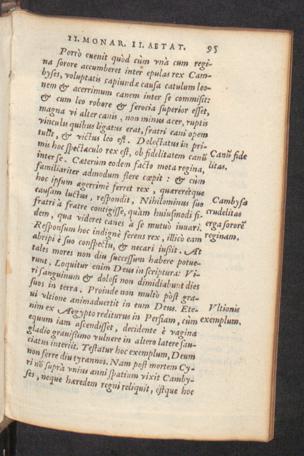 II. MONAR. II. AETAT. 95
Porrò euenit quòd cùm vnà cum regi-
na sorore accumberet inter epulas rex Cam-
byses, voluptatis capiundæ causa catulum leo-
nem & acerrimum canem inter se commisit:
& cum leo robore & ferocia superior esset,
magna vi alter canis, non minus acer, ruptis
vinculis quibus ligatus erat, fratri cani opem
tulit, & victus leo est. Delectatus in pri-
mis hoc spectaculo rex est, ob fidelitatem canū
inter se. Cæterùm eodem facto mota regina,
familiariter admodum flere cœpit: & cùm
hoc ipsum ægerrimè ferret rex, quæreretque
causam luctus, respondit, Nihilominus suo
fratri à fratre contigisse, quàm huiusmodi fi-
dem, qua videret canes à se mutuò iuuari.
Responsum hoc indignè ferens rex, illicò eam
abripi è suo conspectu, & necari iussit. At
tales mores non diu successum habere potue-
runt. Loquitur enim Deus in scriptura: Vi-
ri sanguinum & dolosi non dimidiabunt dies
suos in terra. Proinde non multò pòst gra-
ui vltione animaduertit in eum Deus. Ete-
nim ex Aegypto rediturus in Persiam, cùm
equum iam ascendisset, decidente è vagina
gladio grauissimo vulnere in altero latere sau-
ciatus interijt. Testatur hoc exemplum, Deum
non ferre diu tyrannos. Nam post mortem Cy-
ri nō suprà vnius anni spatium vixit Camby-
ses, neque hæredem regni reliquit, estque hoc
Canū fide
litas.
Cambysæ
crudelitas
erga sororē
reginam.
Vltionis
exemplum.